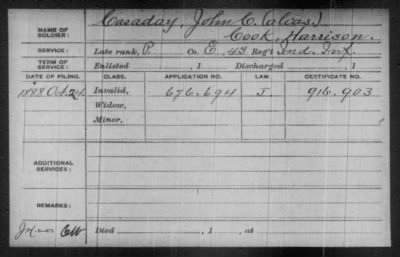 Casaday, John C. (alias)
NAME OF SOLDIER: Cook, Harrison.
SERVICE: Late rank, P. Co. E, 43 Reg't Ind. Inf.
TERM OF SERVICE: Enlisted , 1 Discharged , 1
DATE OF FILING. CLASS. APPLICATION NO. LAW. CERTIFICATE NO.
1888 Oct. 24 Invalid, 676.694 J. 916.903
Widow,
Minor,
ADDITIONAL SERVICES:
REMARKS:
Died , 1 , at